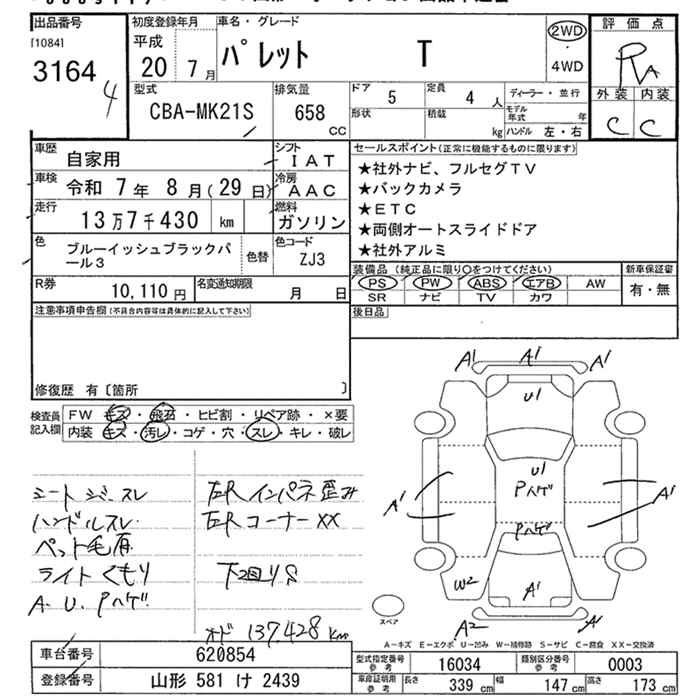 出品番号
[1084]
3164
4
初度登録年月
平成
20 7月
車名・グレード
パレット T
2WD
・
4WD
評価点
RA
外装 内装
C C
型式
CBA-MK21S
排気量
658 CC
ドア
5
定員
4 人
形状
積載
kg
ディーラー・並行
モデル年式 年
ハンドル 左・右
車歴
自家用
シフト
IAT
車検
令和 7年 8月(29日)
冷房
AAC
走行
13万7千430 km
燃料
ガソリン
色
ブルーイッシュブラックパール3
色替
色コード
ZJ3
R券
10,110円
名変通知期限
月 日
セールスポイント(正常に機能するものに限ります)
★社外ナビ、フルセグTV
★バックカメラ
★ETC
★両側オートスライドドア
★社外アルミ
装備品 (純正品に限り○をつけてください)
PS PW ABS エアB AW
SR ナビ TV カワ
新車保証書
有・無
後日品
注意事項申告欄(不具合内容等は具体的に記入して下さい)
修復歴 有〔箇所 〕
検査員記入欄
FW キズ・飛石・ヒビ割・リペア跡・×要
内装 キズ・汚レ・コゲ・穴・スレ・キレ・破レ
シート シミ スレ
ハンドルスレ
ペット毛有
ライト くもり
A. U. Pハゲ
左R インパネ歪み
左R コーナーXX
下回りS
オド 137,428 Km
A1 A1 A1
U1
U1
Pハゲ
A1 A1
Pハゲ
W2
A1
A2 A1
スペア
A-キズ E-エクボ U-凹み W-補修跡 S-サビ C-腐食 XX-交換済
車台番号
620854
登録番号
山形 581 け 2439
型式指定番号 参考
16034
類別区分番号 参考
0003
車庫証明用 参考
長さ 339 cm 幅 147 cm 高さ 173 cm